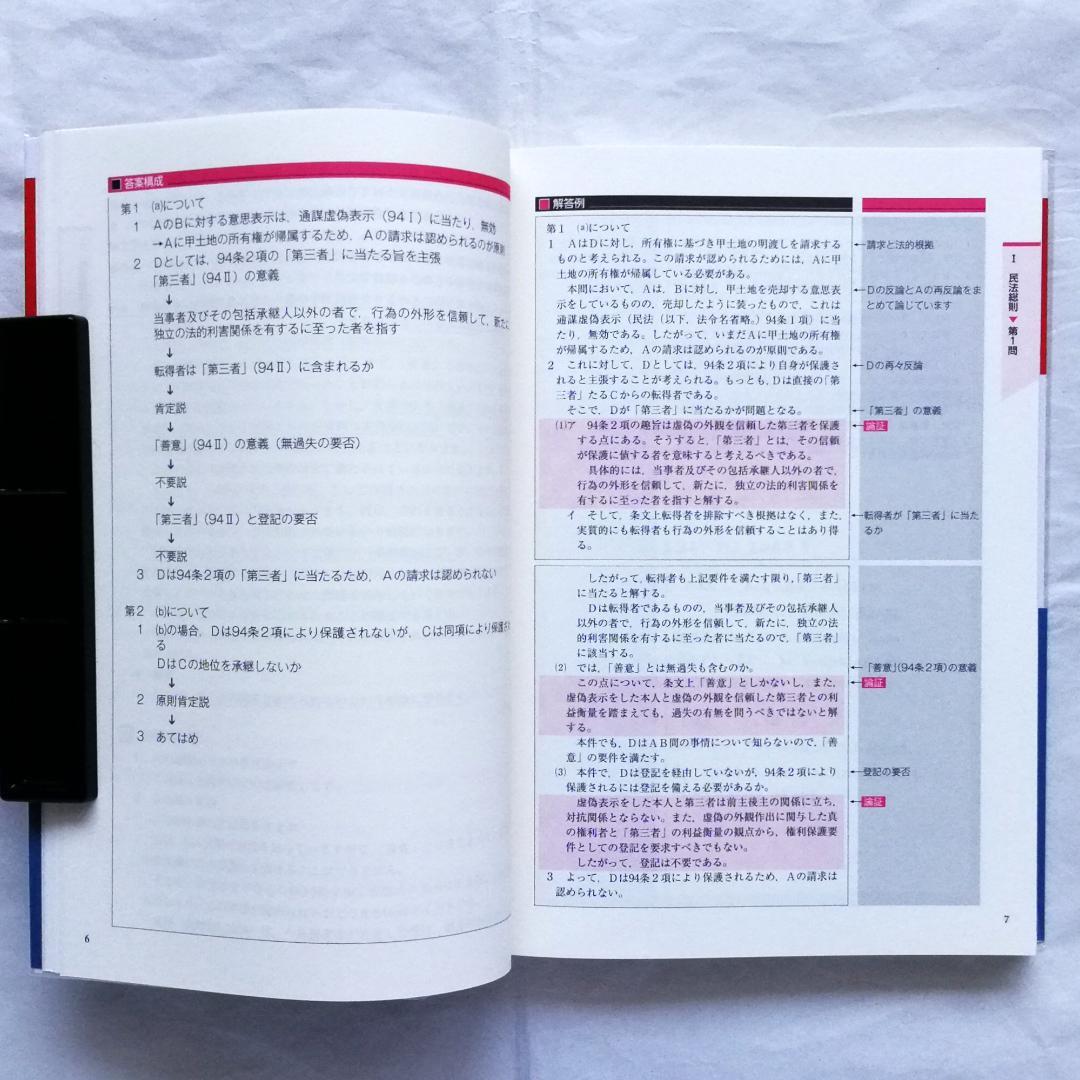 答案構成
第1 (a)について
1 AのBに対する意思表示は、通謀虚偽表示（94Ⅰ）に当たり、無効
→Aに甲土地の所有権が帰属するため、Aの請求は認められるのが原則
2 Dとしては、94条2項の「第三者」に当たる旨を主張
「第三者」（94Ⅱ）の意義
↓
当事者及びその包括承継人以外の者で、行為の外形を信頼して、新たに
独立の法的利害関係を有するに至った者を指す
↓
転得者は「第三者」（94Ⅱ）に含まれるか
↓
肯定説
↓
「善意」（94Ⅱ）の意義（無過失の要否）
↓
不要説
↓
「第三者」（94Ⅱ）と登記の要否
↓
不要説
3 Dは94条2項の「第三者」に当たるため、Aの請求は認められない
第2 (b)について
1 (b)の場合、Dは94条2項により保護されないが、Cは同項により保護され
る
DはCの地位を承継しないか
↓
2 原則肯定説
↓
3 あてはめ
6
解答例
第1 (a)について
1 AはDに対し、所有権に基づき甲土地の明渡しを請求する
ものと考えられる。この請求が認められるためには、Aに甲
土地の所有権が帰属している必要がある。
本問において、Aは、Bに対し、甲土地を売却する意思表
示をしているものの、売却したように装ったもので、これは
通謀虚偽表示（民法（以下、法令名省略。）94条1項）に当
たり、無効である。したがって、いまだAに甲土地の所有権
が帰属するため、Aの請求は認められるのが原則である。
2 これに対して、Dとしては、94条2項により自身が保護さ
れると主張することが考えられる。もっとも、Dは直接の「第
三者」たるCからの転得者である。
そこで、Dが「第三者」に当たるかが問題となる。
(1)ア 94条2項の趣旨は虚偽の外観を信頼した第三者を保護
する点にある。そうすると、「第三者」とは、その信頼
が保護に値する者を意味すると考えるべきである。
具体的には、当事者及びその包括承継人以外の者で、
行為の外形を信頼して、新たに、独立の法的利害関係を
有するに至った者を指すと解する。
イ そして、条文上転得者を排除すべき根拠はなく、また、
実質的にも転得者も行為の外形を信頼することはあり得
る。
したがって、転得者も上記要件を満たす限り、「第三者」
に当たると解する。
Dは転得者であるものの、当事者及びその包括承継人
以外の者で、行為の外形を信頼して、新たに、独立の法
的利害関係を有するに至った者に当たるので、「第三者」
に該当する。
(2) では、「善意」とは無過失も含むのか。
この点について、条文上「善意」としかないし、また、
虚偽表示をした本人と虚偽の外観を信頼した第三者との利
益衡量を踏まえても、過失の有無を問うべきではないと解
する。
本件でも、DはAB間の事情について知らないので、「善
意」の要件を満たす。
(3) 本件で、Dは登記を経由していないが、94条2項により
保護されるには登記を備える必要があるか。
虚偽表示をした本人と第三者は前主後主の関係に立ち、
対抗関係とならない。また、虚偽の外観作出に関与した真
の権利者と「第三者」の利益衡量の観点から、権利保護要
件としての登記を要求すべきでもない。
したがって、登記は不要である。
3 よって、Dは94条2項により保護されるため、Aの請求は
認められない。
←請求と法的根拠
←Dの反論とAの再反論をま
とめて論じています
←Dの再々反論
←「第三者」の意義
←論証
←転得者が「第三者」に当た
るか
←「善意」（94条2項）の意義
←論証
←登記の要否
←論証
Ⅰ 民法総則▼第1問
7